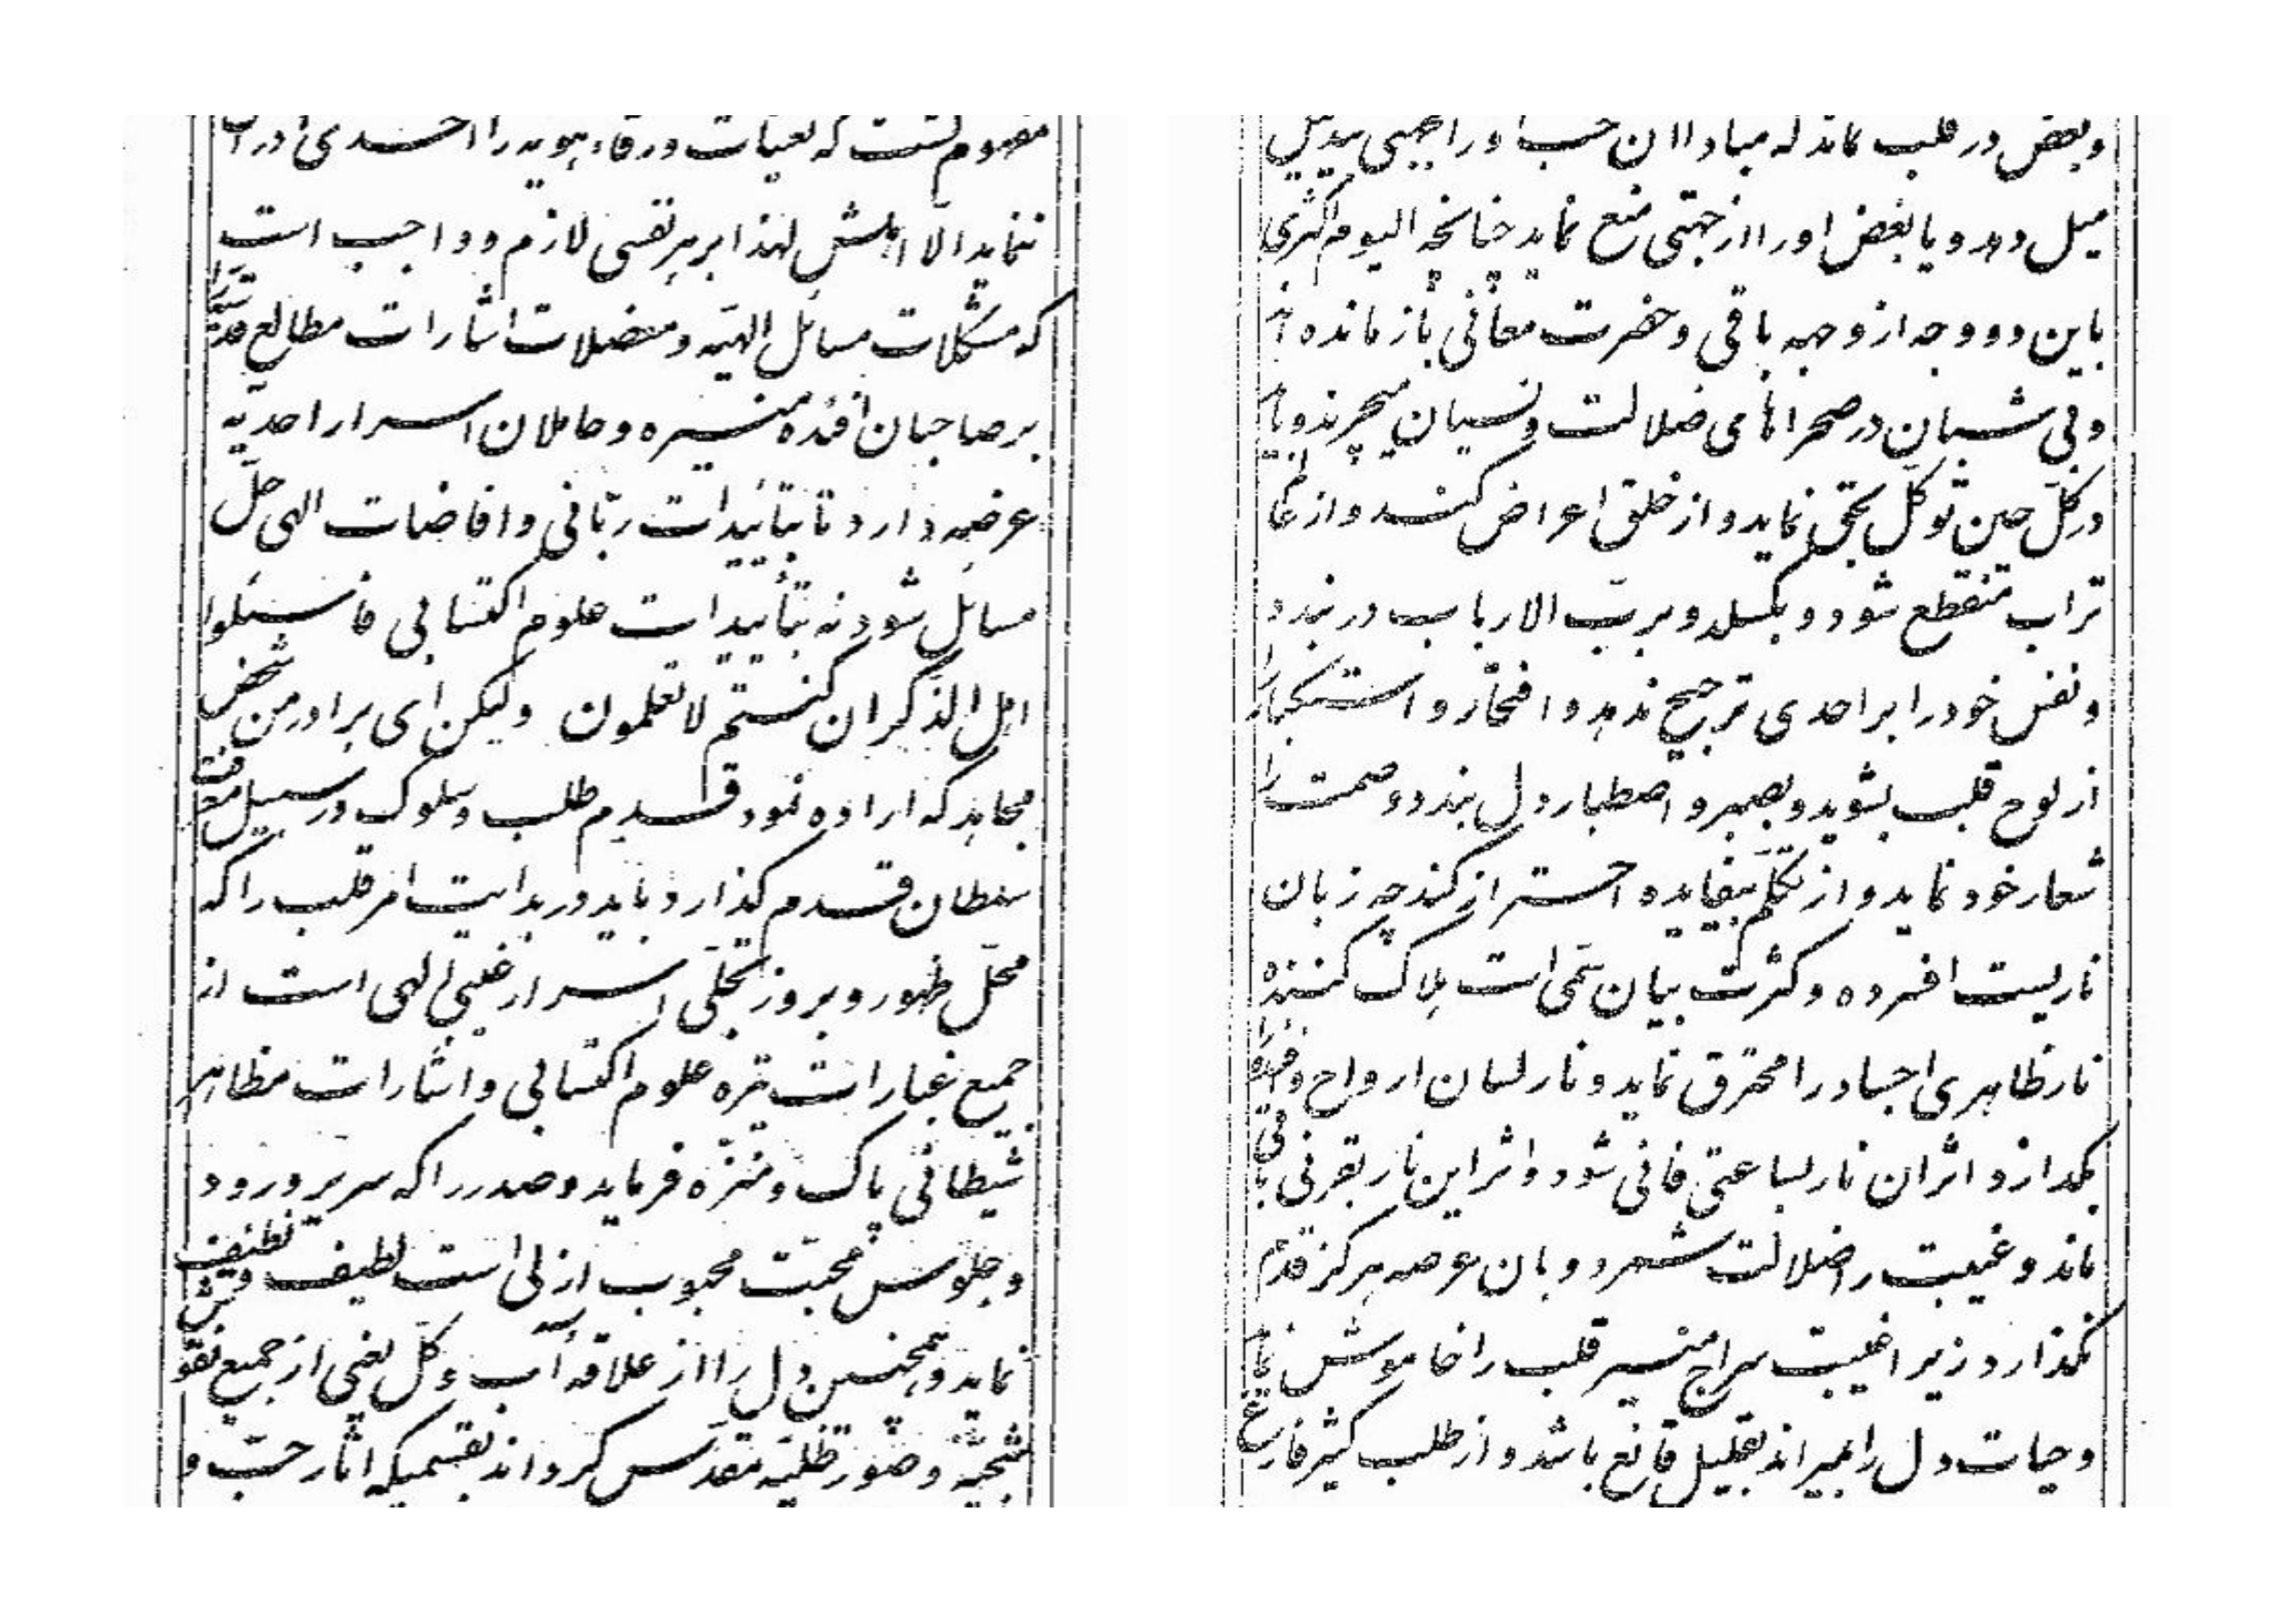 مفهوم گشت که نغمات ورقاء هویه را احدی ادراک
ننماید الّا اهلش لهذا بر هر نفسی لازم و واجب است
که مشکلات مسائل الهیّه و معضلات اشارات مطالع قدسیّه را
بر صاحبان افئده منیره و حاملان اسرار احدیّه
عرضه دارد تا بتأئیدات ربّانی و افاضات الهی حلّ
مسائل شود نه بتأییدات علوم اکتسابی فاسئلوا
اهل الذّکر ان کنتم لا تعلمون ولیکن ای برادر من شخص
مجاهد که اراده نمود قدم طلب و سلوک در سبیل معرفت
سلطان قدم گذارد باید در بدایت امر قلب را که
محلّ ظهور و بروز تجلّی اسرار غیبی الهی است از
جمیع غبارات تیره علوم اکتسابی و اشارات مظاهر
شیطانی پاک و منزّه فرماید و صدر را که سریر ورود
و جلوس محبّت محبوب ازلی است لطیف و نظیف
نماید و همچنین دل را از علاقه آب و گل یعنی از جمیع نقوش
شبحیّه و صور ظلیّه مقدّس گرداند بقسمیکه آثار حبّ و
و بغض در قلب نماند که مبادا ان حب او را بجهتی بیدلیل
میل دهد و یا بغض او را از جهتی منع نماید چنانچه الیوم اکثری
باین دو وجه از وجهه باقی و حضرت معانی باز مانده اند
و بی شبان در صحراهای ضلالت و نسیان میچرند و باید
در کلّ حین توکّل بحق نماید و از خلق اعراض کند و از عالم
تراب منقطع شود و بگسلد و بربّ الارباب در بندد
و نفس خود را بر احدی ترجیح ندهد و افتخار و استکبار را
از لوح قلب بشوید و بصبر و اصطبار دل بندد و صمت را
شعار خود نماید و از تکلّم بیفایده احتراز کند چه زبان
ناریست افسرده و کثرت بیان سمّی است هلاک کننده
نار ظاهری اجساد را محترق نماید و نار لسان ارواح و افئده را
بگدازد اثر ان نار بساعتی فانی شود و اثر این نار بقرنی باقی
ماند و غیبت را ضلالت شمرد و بان عرصه هرگز قدم
نگذارد زیرا غیبت سراج منیر قلب را خاموش نماید
و حیات دل را بمیراند بقلیل قانع باشد و از طلب کثیر فارغ